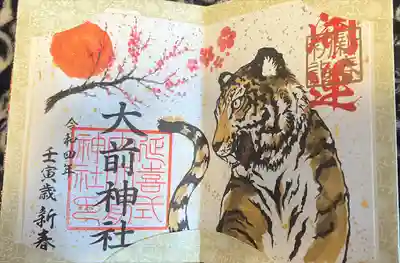 運
延喜式
大前神社
令和四年
壬寅歳 新春